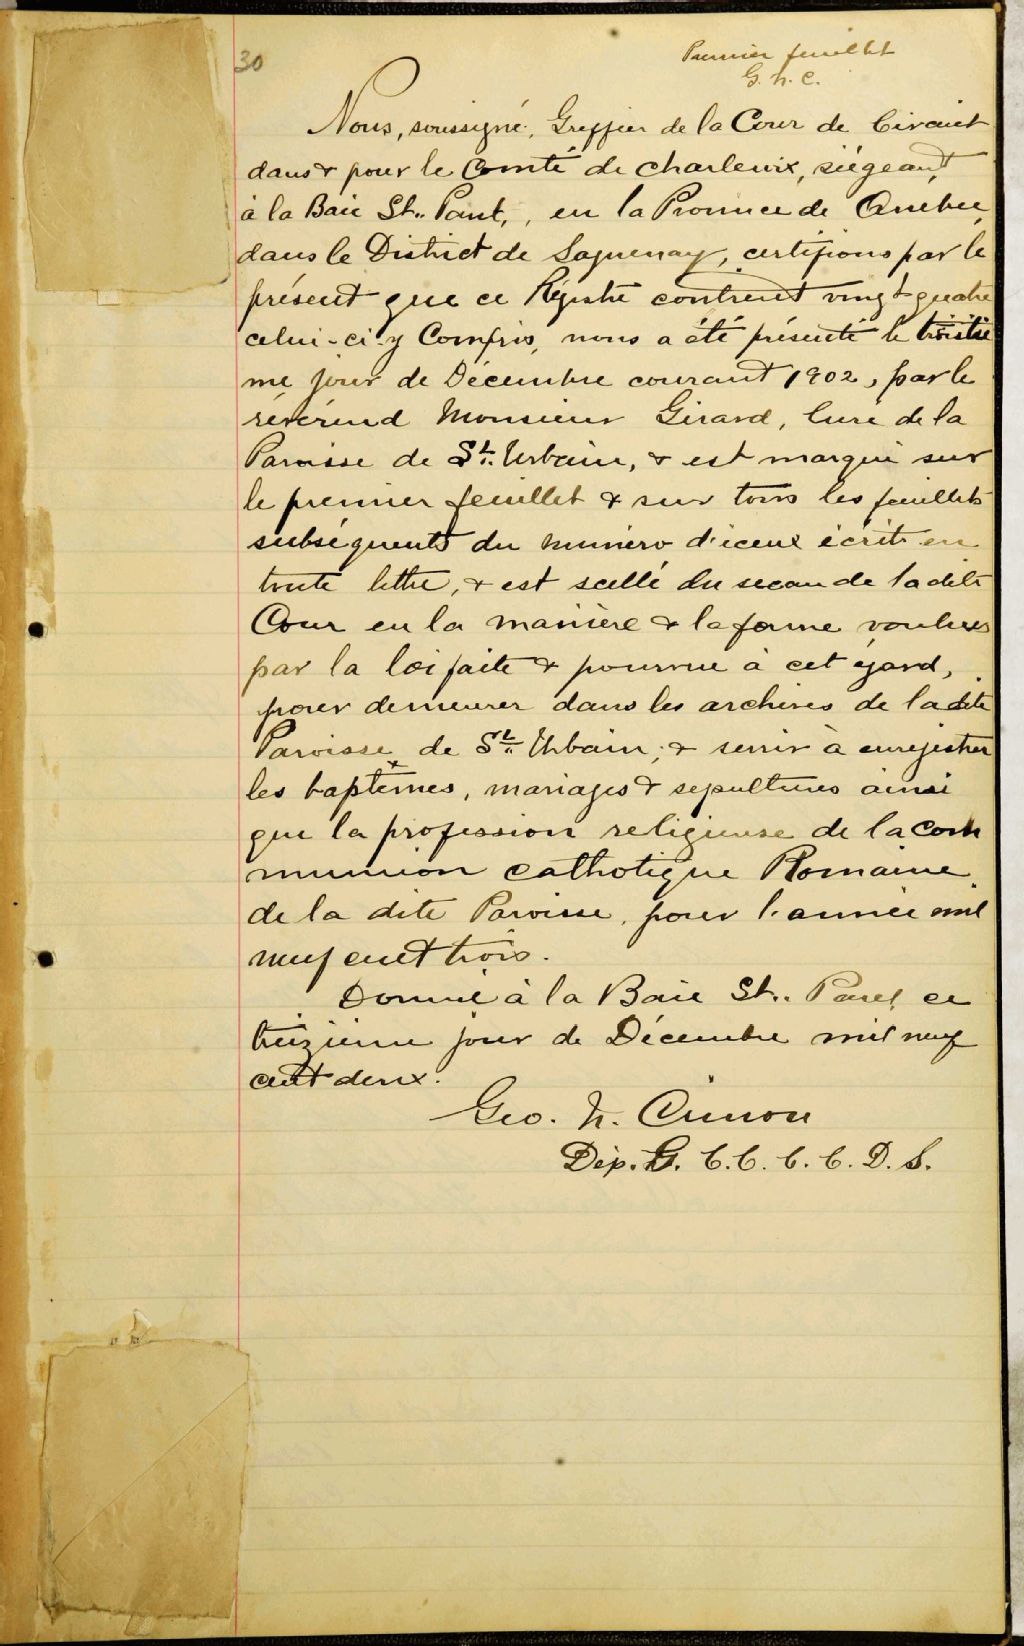 30
Premier feuillet
G. h. C.
Nous, soussigné, Greffier de la Cour de Circuit
dans & pour le Comté de Charlevoix, siégeant,
à la Baie St.. Paul, en la Province de Quebec,
dans le District de Saguenay, certifions par le
présent que ce Régistre contient vingt quatre
celui-ci y Compris, nous a été présenté le
me jour de Décembre courant 1902, par le
révérend Monsieur Girard, Curé de la
Paroisse de St. Urbain, & est marqué sur
le premier feuillet & sur tous les feuillets
subséquents du numéro d'iceux écrit en
toute lettre, & est scellé du sceau de la dite
Cour en la manière & la forme voulues
par la loi faite & pourvue à cet égard,
pour demeurer dans les archives de la dite
Paroisse de St. Urbain, & servir à enregistrer
les baptêmes, mariages & sepultures ainsi
que la profession religieuse de la com
munion catholique Romaine
de la dite Paroisse, pour l'année mil
neuf cent trois.
Donné à la Baie St.. Paul, ce
treizième jour de Décembre mil neuf
cent deux.
Geo. h. Cimon
Dép. G. C. C. C. C. D. S.